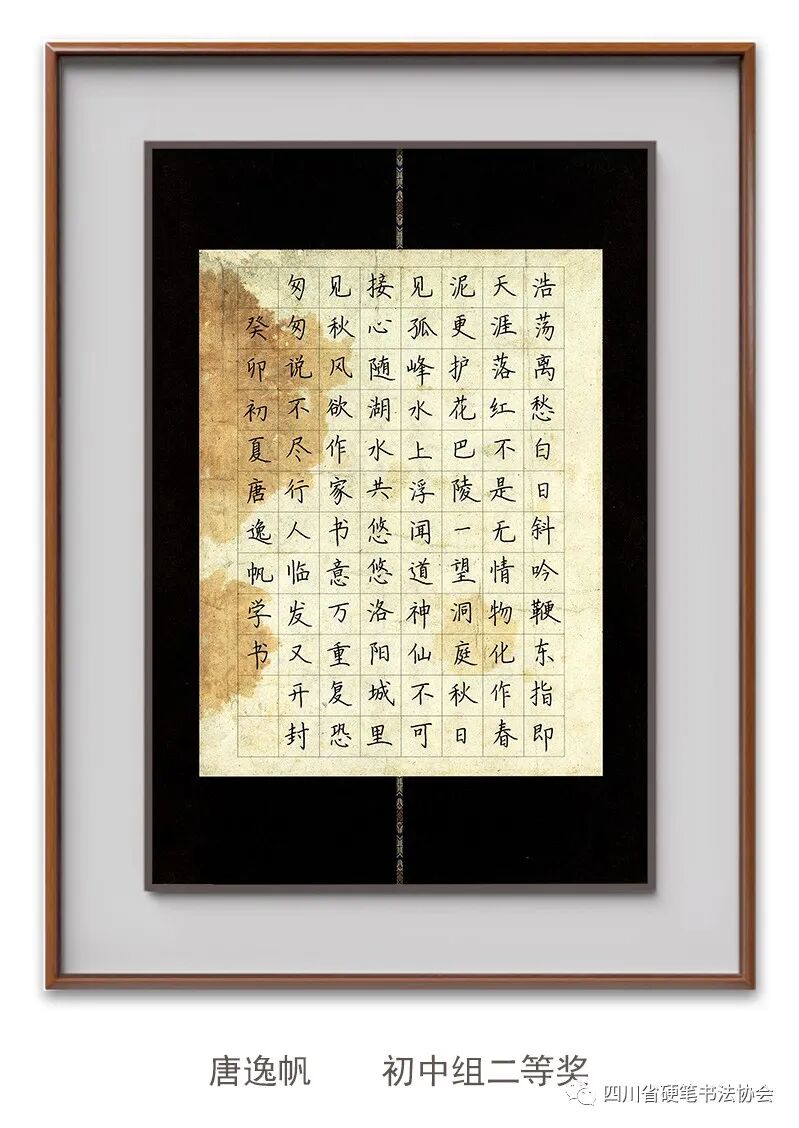 浩荡离愁白日斜吟鞭东指即
天涯落红不是无情物化作春
泥更护花巴陵一望洞庭秋日
见孤峰水上浮闻道神仙不可
接心随湖水共悠悠洛阳城里
见秋风欲作家书意万重复恐
匆匆说不尽行人临发又开封
癸卯初夏唐逸帆学书
唐逸帆 初中组二等奖
四川省硬笔书法协会